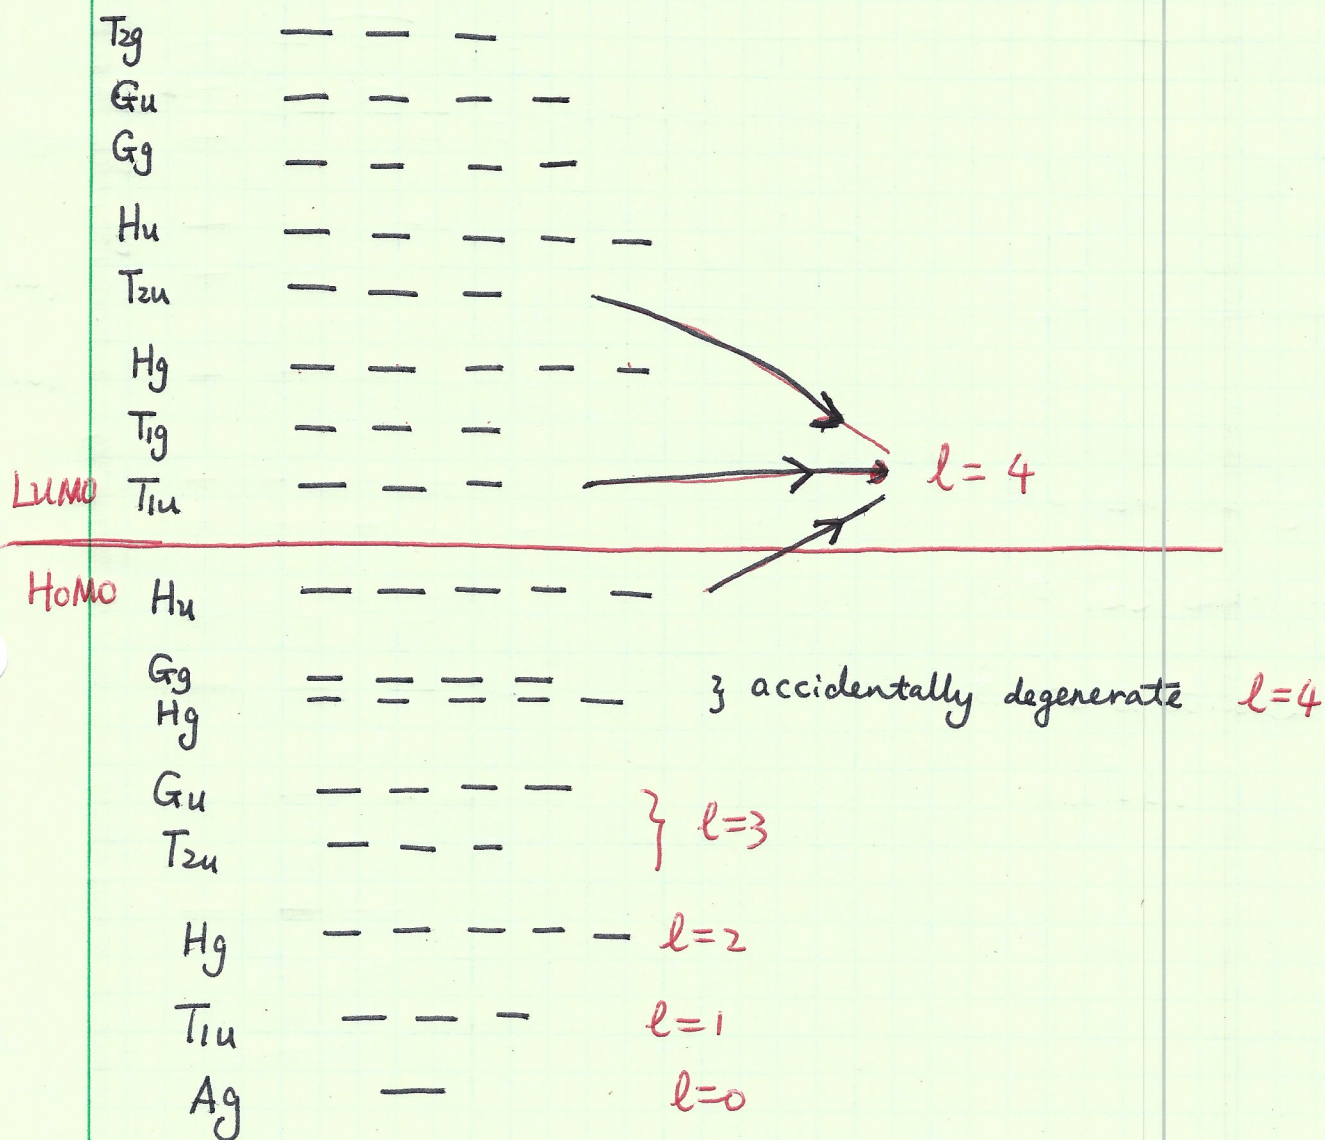 T2g
Gu
Gg
Hu
T2u
Hg
T1g
l = 4
LUMO T1u
HOMO Hu
Gg
} accidentally degenerate l=4
Hg
Gu
} l=3
T2u
Hg l=2
T1u l=1
Ag l=0